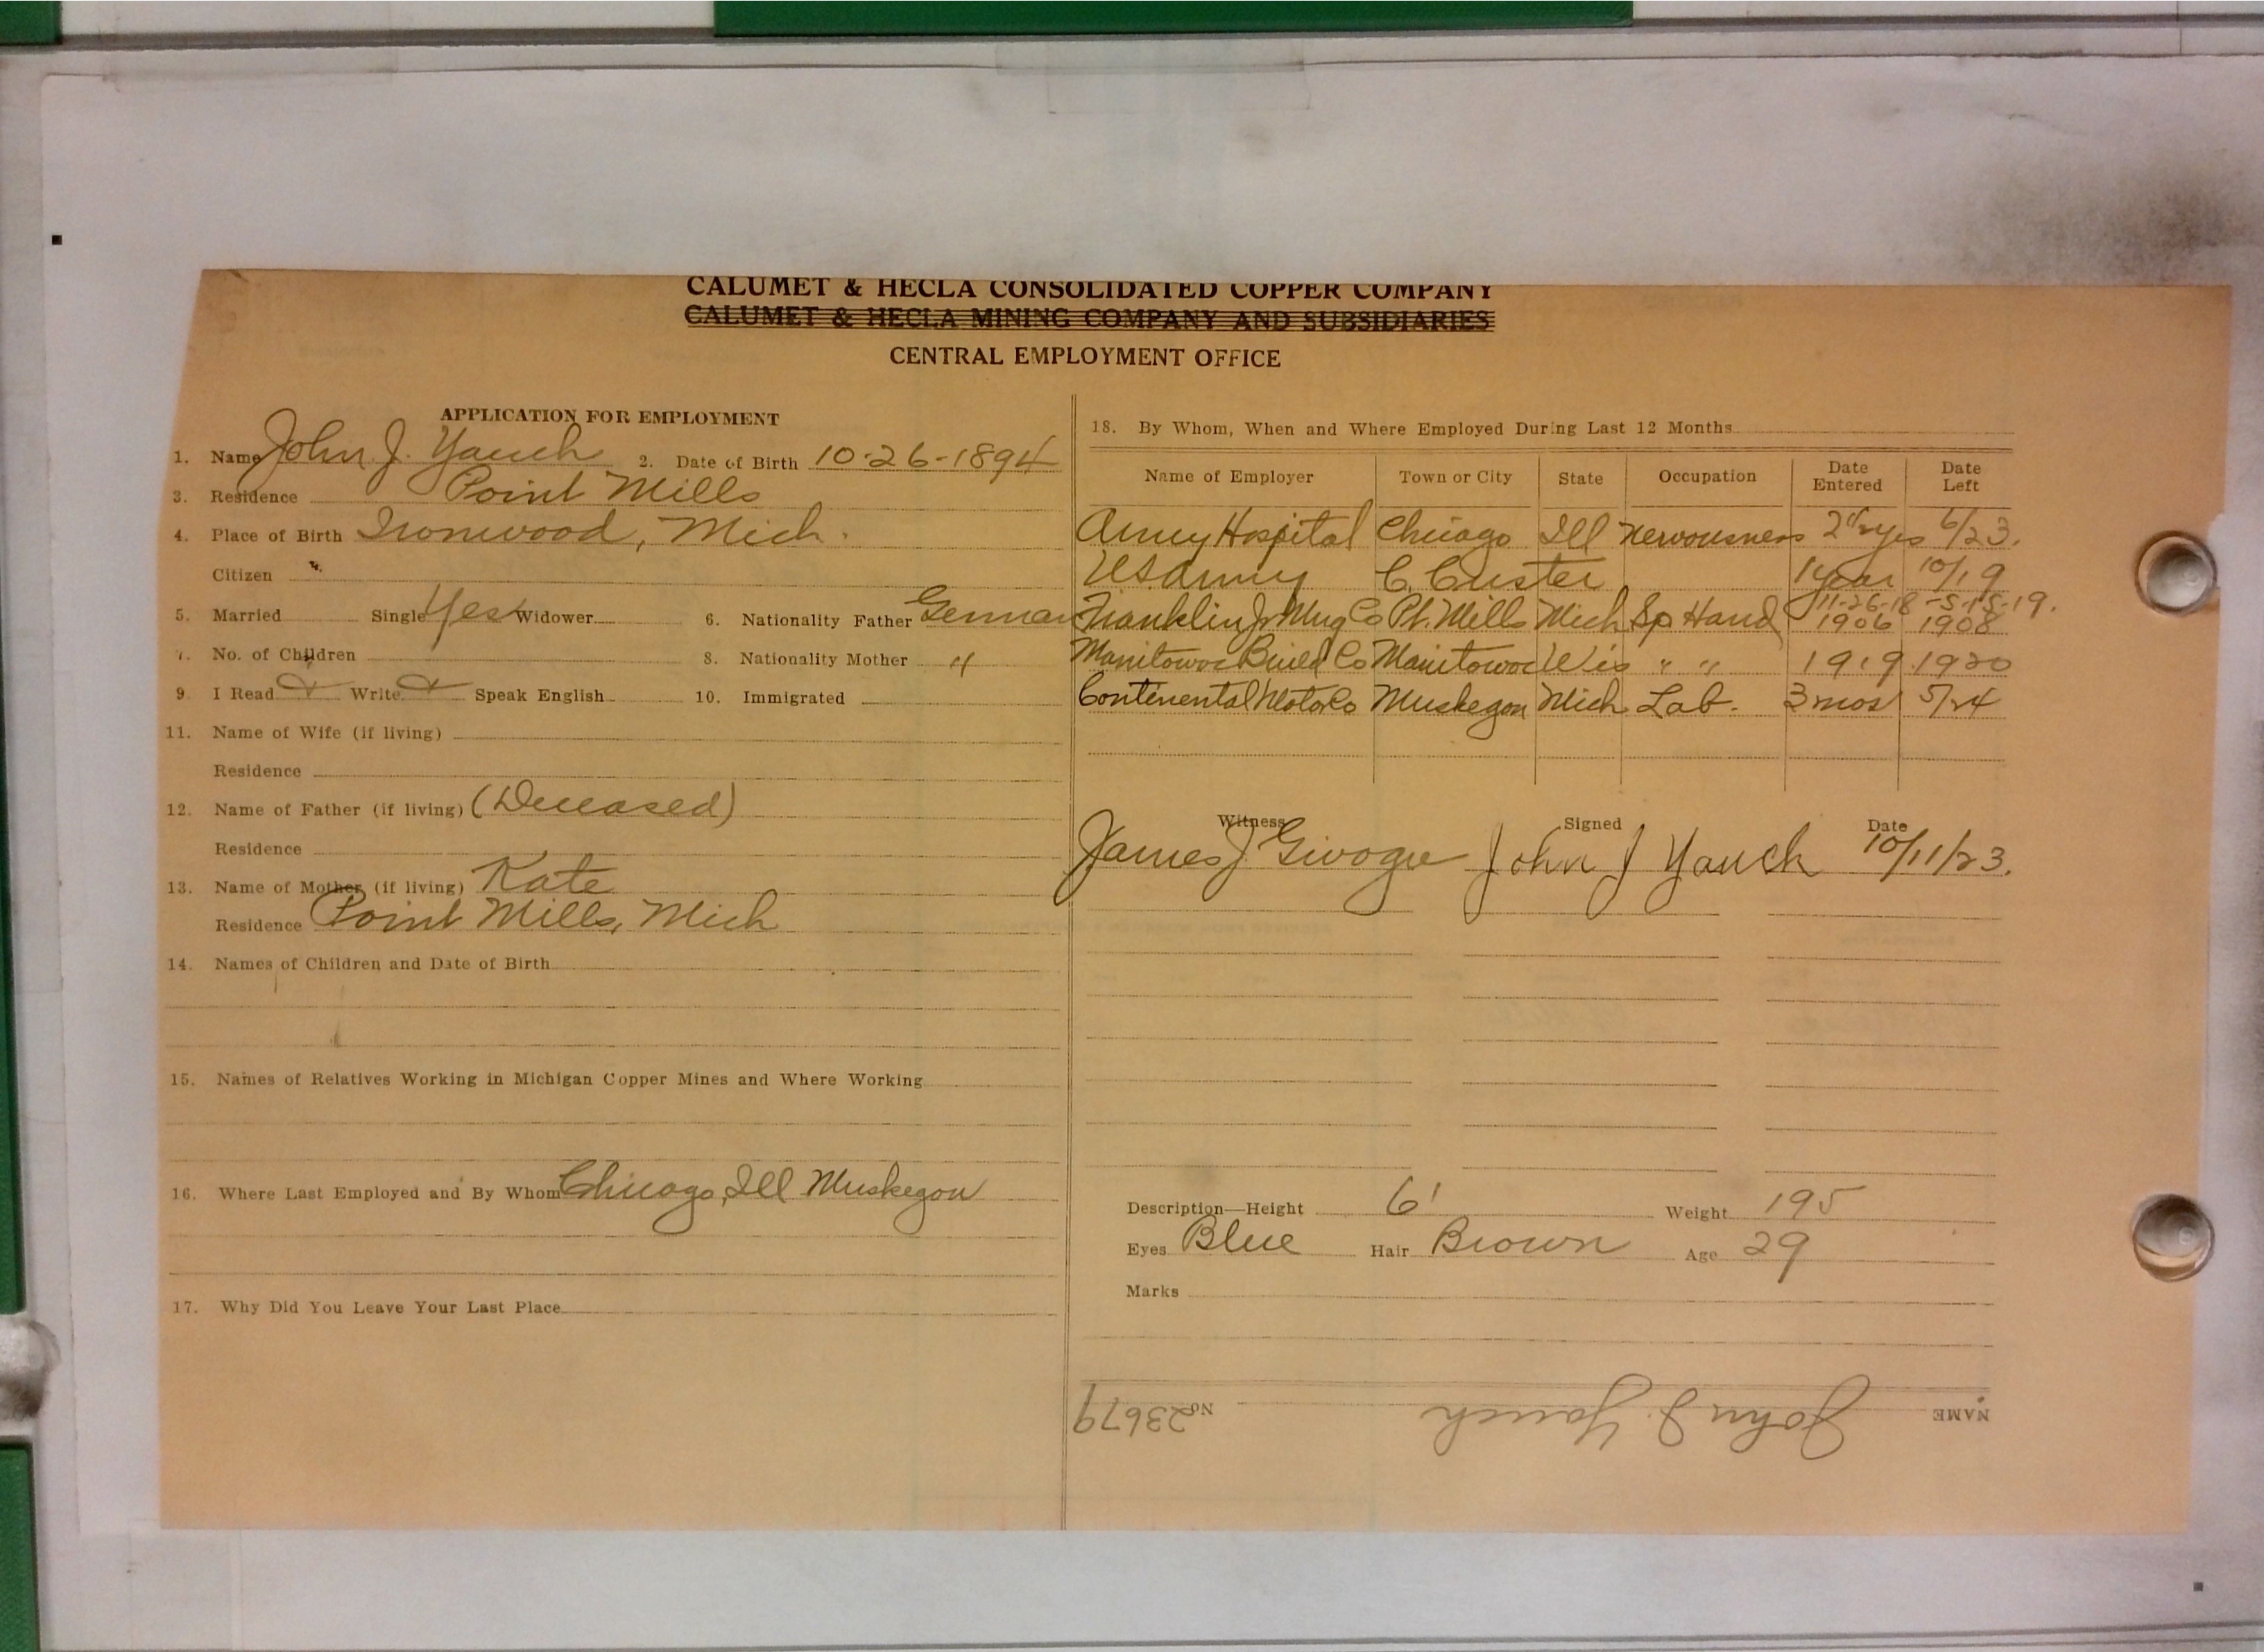 CALUMET & HECLA CONSOLIDATED COPPER COMPANY
CALUMET & HECLA MINING COMPANY AND SUBSIDIARIES
CENTRAL EMPLOYMENT OFFICE
APPLICATION FOR EMPLOYMENT
1. Name John J. Yauch 2. Date of Birth 10-26-1894
3. Residence Point Mills
4. Place of Birth Ironwood, Mich.
Citizen
5. Married Single Yes Widower 6. Nationality Father German
7. No. of Children 8. Nationality Mother "
9. I Read Write Speak English 10. Immigrated
11. Name of Wife (if living)
Residence
12. Name of Father (if living) (Deceased)
Residence
13. Name of Mother (if living) Kate
Residence Point Mills, Mich
14. Names of Children and Date of Birth
15. Names of Relatives Working in Michigan Copper Mines and Where Working
16. Where Last Employed and By Whom Chicago, Ill Muskegon
17. Why Did You Leave Your Last Place
18. By Whom, When and Where Employed During Last 12 Months
Name of Employer Town or City State Occupation Date Entered Date Left
Army Hospital Chicago Ill Nervousness 2 1/2 yrs 6/23.
US Army C. Custer 1 year 10/19
11-26-18 -5-15-19.
Franklin Jr Mng Co Pt. Mills Mich Sp Hand 1906 1908
Manitowoc Build Co Manitowoc Wis " " 1919 1920
Continental Motor Co Muskegon Mich Lab. 3 mos 5/24
Witness Signed Date
James J John J Yauch 10/11/23.
Description—Height 6' Weight 195
Eyes Blue Hair Brown Age 29
Marks
NAME John J. Yauch No. 23679